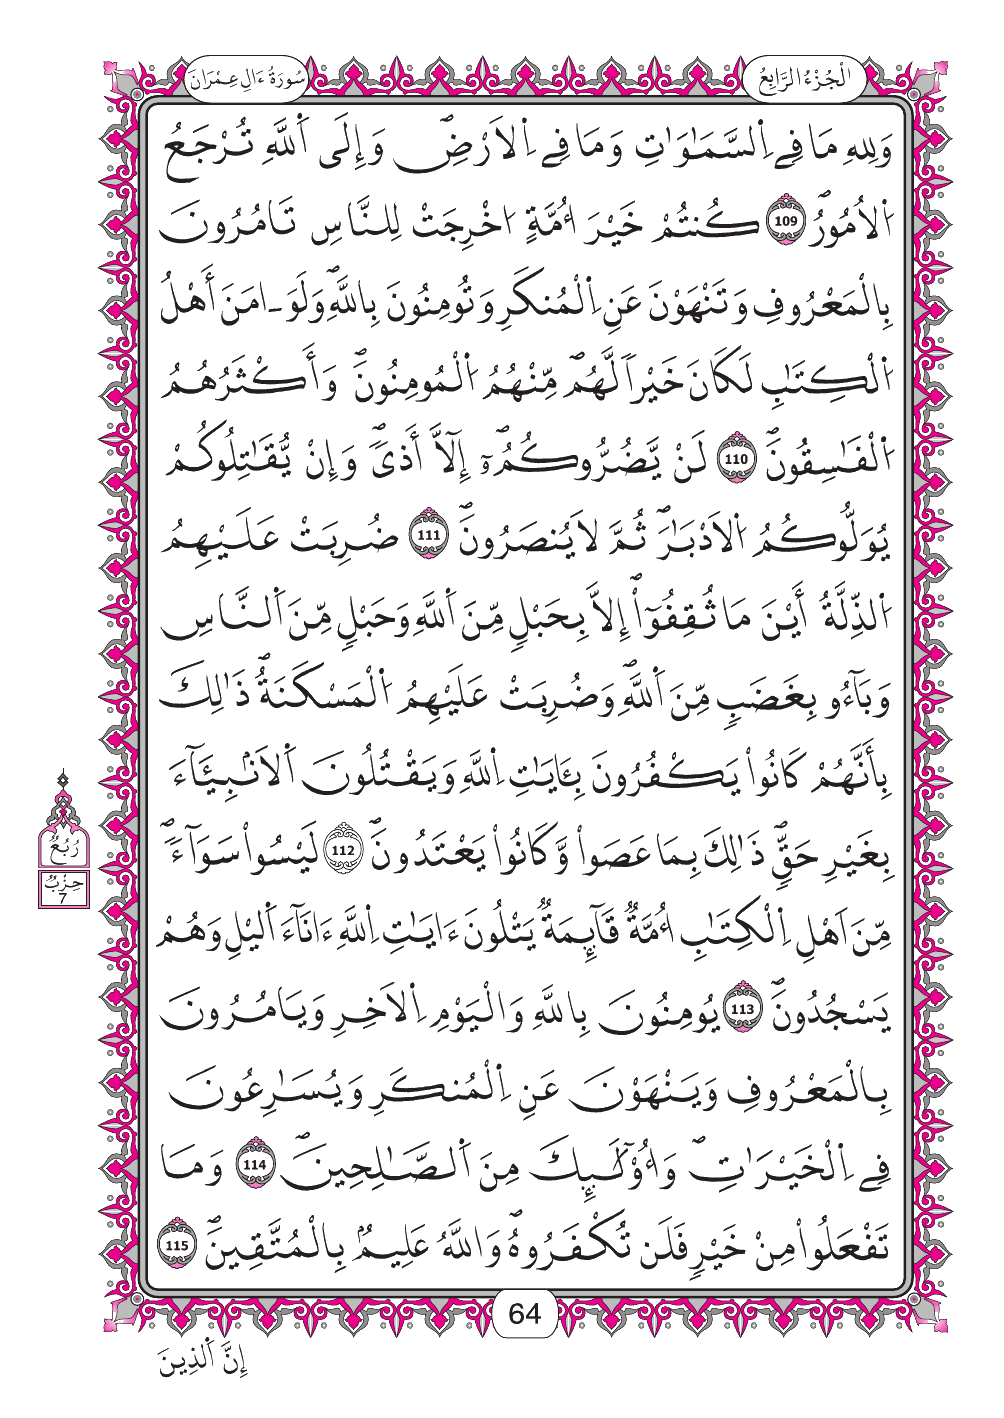 سُورَةُ ءَالِ عِمْرَانَ
اَلْجُزْءُ الرَّابِعُ
وَلِلهِ مَا فِے اِ۬لسَّمَٰوَٰتِ وَمَا فِے اِ۬لَارْضِۖ وَإِلَى اَ۬للَّهِ تُرْجَعُ
اُ۬لُامُورُۖ 109 كُنتُمْ خَيْرَ أُمَّةٍ ا۟خْرِجَتْ لِلنَّاسِ تَامُرُونَ
بِالْمَعْرُوفِ وَتَنْهَوْنَ عَنِ اِ۬لْمُنكَرِ وَتُومِنُونَ بِاللَّهِۖ وَلَوَ ـ امَنَ أَهْلُ
اُ۬لْكِتَٰبِ لَكَانَ خَيْراٗ لَّهُمۖ مِّنْهُمُ اُ۬لْمُومِنُونَۖ وَأَكْثَرُهُمُ
اُ۬لْفَٰسِقُونَۖ 110 لَنْ يَّضُرُّوكُمُۥٓ إِلَّآ أَذىٗۖ وَإِنْ يُّقَٰتِلُوكُمْ
يُوَلُّوكُمُ اُ۬لَادْبَٰرَۖ ثُمَّ لَا يُنصَرُونَۖ 111 ضُرِبَتْ عَلَيْهِمُ
اُ۬لذِّلَّةُ أَيْنَ مَا ثُقِفُوٓاْۖ إِلَّا بِحَبْلٖ مِّنَ اَ۬للَّهِ وَحَبْلٖ مِّنَ اَ۬لنَّاسِ
وَبَآءُو بِغَضَبٖ مِّنَ اَ۬للَّهِۖ وَضُرِبَتْ عَلَيْهِمُ اُ۬لْمَسْكَنَةُۖ ذَٰلِكَ
بِأَنَّهُمْ كَانُواْ يَكْفُرُونَ بِـَٔايَٰتِ اِ۬للَّهِ وَيَقْتُلُونَ اَ۬لَانۢبِيَآءَ
بِغَيْرِ حَقّٖۖ ذَٰلِكَ بِمَا عَصَواْ وَّكَانُواْ يَعْتَدُونَۖ 112 لَيْسُواْ سَوَآءٗۖ
مِّنَ اَهْلِ اِ۬لْكِتَٰبِ أُمَّةٞ قَآئِمَةٞ يَتْلُونَ ءَايَٰتِ اِ۬للَّهِ ءَانَآءَ اَ۬ليْلِ وَهُمْ
يَسْجُدُونَۖ 113 يُومِنُونَ بِاللَّهِ وَالْيَوْمِ اِ۬لَاخِرِ وَيَامُرُونَ
بِالْمَعْرُوفِ وَيَنْهَوْنَ عَنِ اِ۬لْمُنكَرِ وَيُسَٰرِعُونَ
فِے اِ۬لْخَيْرَٰتِۖ وَأُوْلَٰٓئِكَ مِنَ اَ۬لصَّٰلِحِينَۖ 114 وَمَا
تَفْعَلُواْ مِنْ خَيْرٖ فَلَن تُكْفَرُوهُۖ وَاللَّهُ عَلِيمُۢ بِالْمُتَّقِينَۖ 115
رُبُعُ
حِزْبُ
7
64
إِنَّ اَ۬لذِينَ